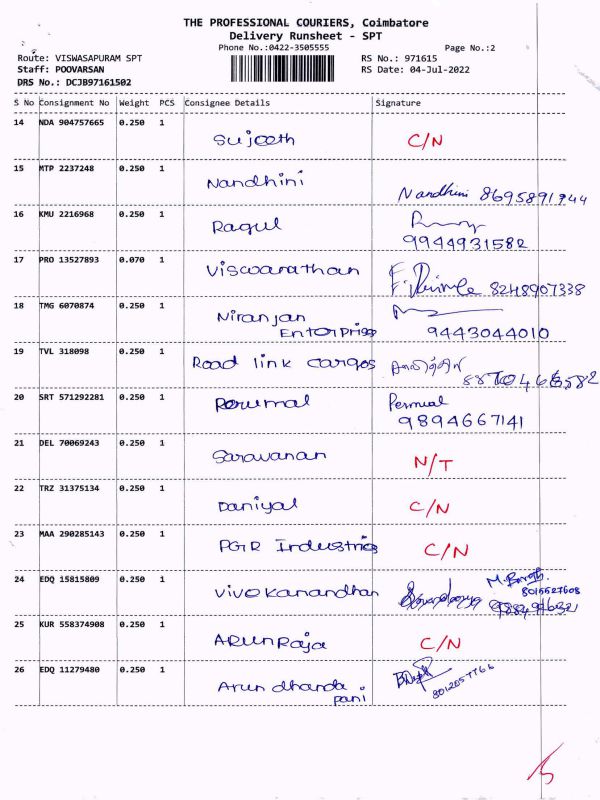 THE PROFESSIONAL COURIERS, Coimbatore
Delivery Runsheet - SPT
Phone No.:0422-3505555 Page No.:2
Route: VISWASAPURAM SPT RS No.: 971615
Staff: POOVARSAN RS Date: 04-Jul-2022
DRS No.: DCJB97161502
S No Consignment No Weight PCS Consignee Details Signature
14 NDA 904757665 0.250 1
Sujeeth C/N
15 MTP 2237248 0.250 1
Nandhini Nandhini 8695891944
16 KMU 2216968 0.250 1
Ragul
9944931582
17 PRO 13527893 0.070 1
Viswarathan 8248907338
18 TMG 6070874 0.250 1
Niranjan
Enterprises 9443044010
19 TVL 318098 0.250 1
Road link cargos
20 SRT 571292281 0.250 1
Perumal Permual
9894667141
21 DEL 70069243 0.250 1
Saravanan N/T
22 TRZ 31375134 0.250 1
Daniyal C/N
23 MAA 290285143 0.250 1
PGR Industries C/N
24 EDQ 15815809 0.250 1
Vivekanandhan 8015527608
25 KUR 558374908 0.250 1
Arun Raja C/N
26 EDQ 11279480 0.250 1
Arun dhanda
pani